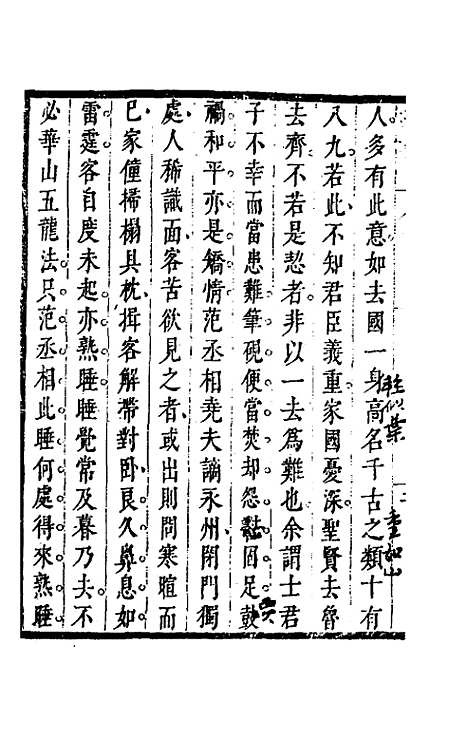 人多有此意如去國一身高名千古之類十有
八九若此不知君臣義重家國憂深聖賢去魯
去齊不若是恝者非以一去為難也余謂士君
子不幸而當患難筆硯便當焚却怨懟固足鼓
禍和平亦是矯情范丞相堯夫謫永州閉門獨
處人稀識面客苦欲見之者或出則問寒暄而
已家僮掃榻具枕揖客解帶對卧良久鼻息如
雷霆客自度未起亦熟睡睡覺常及暮乃去不
必華山五龍法只范丞相此睡何處得來熟睡